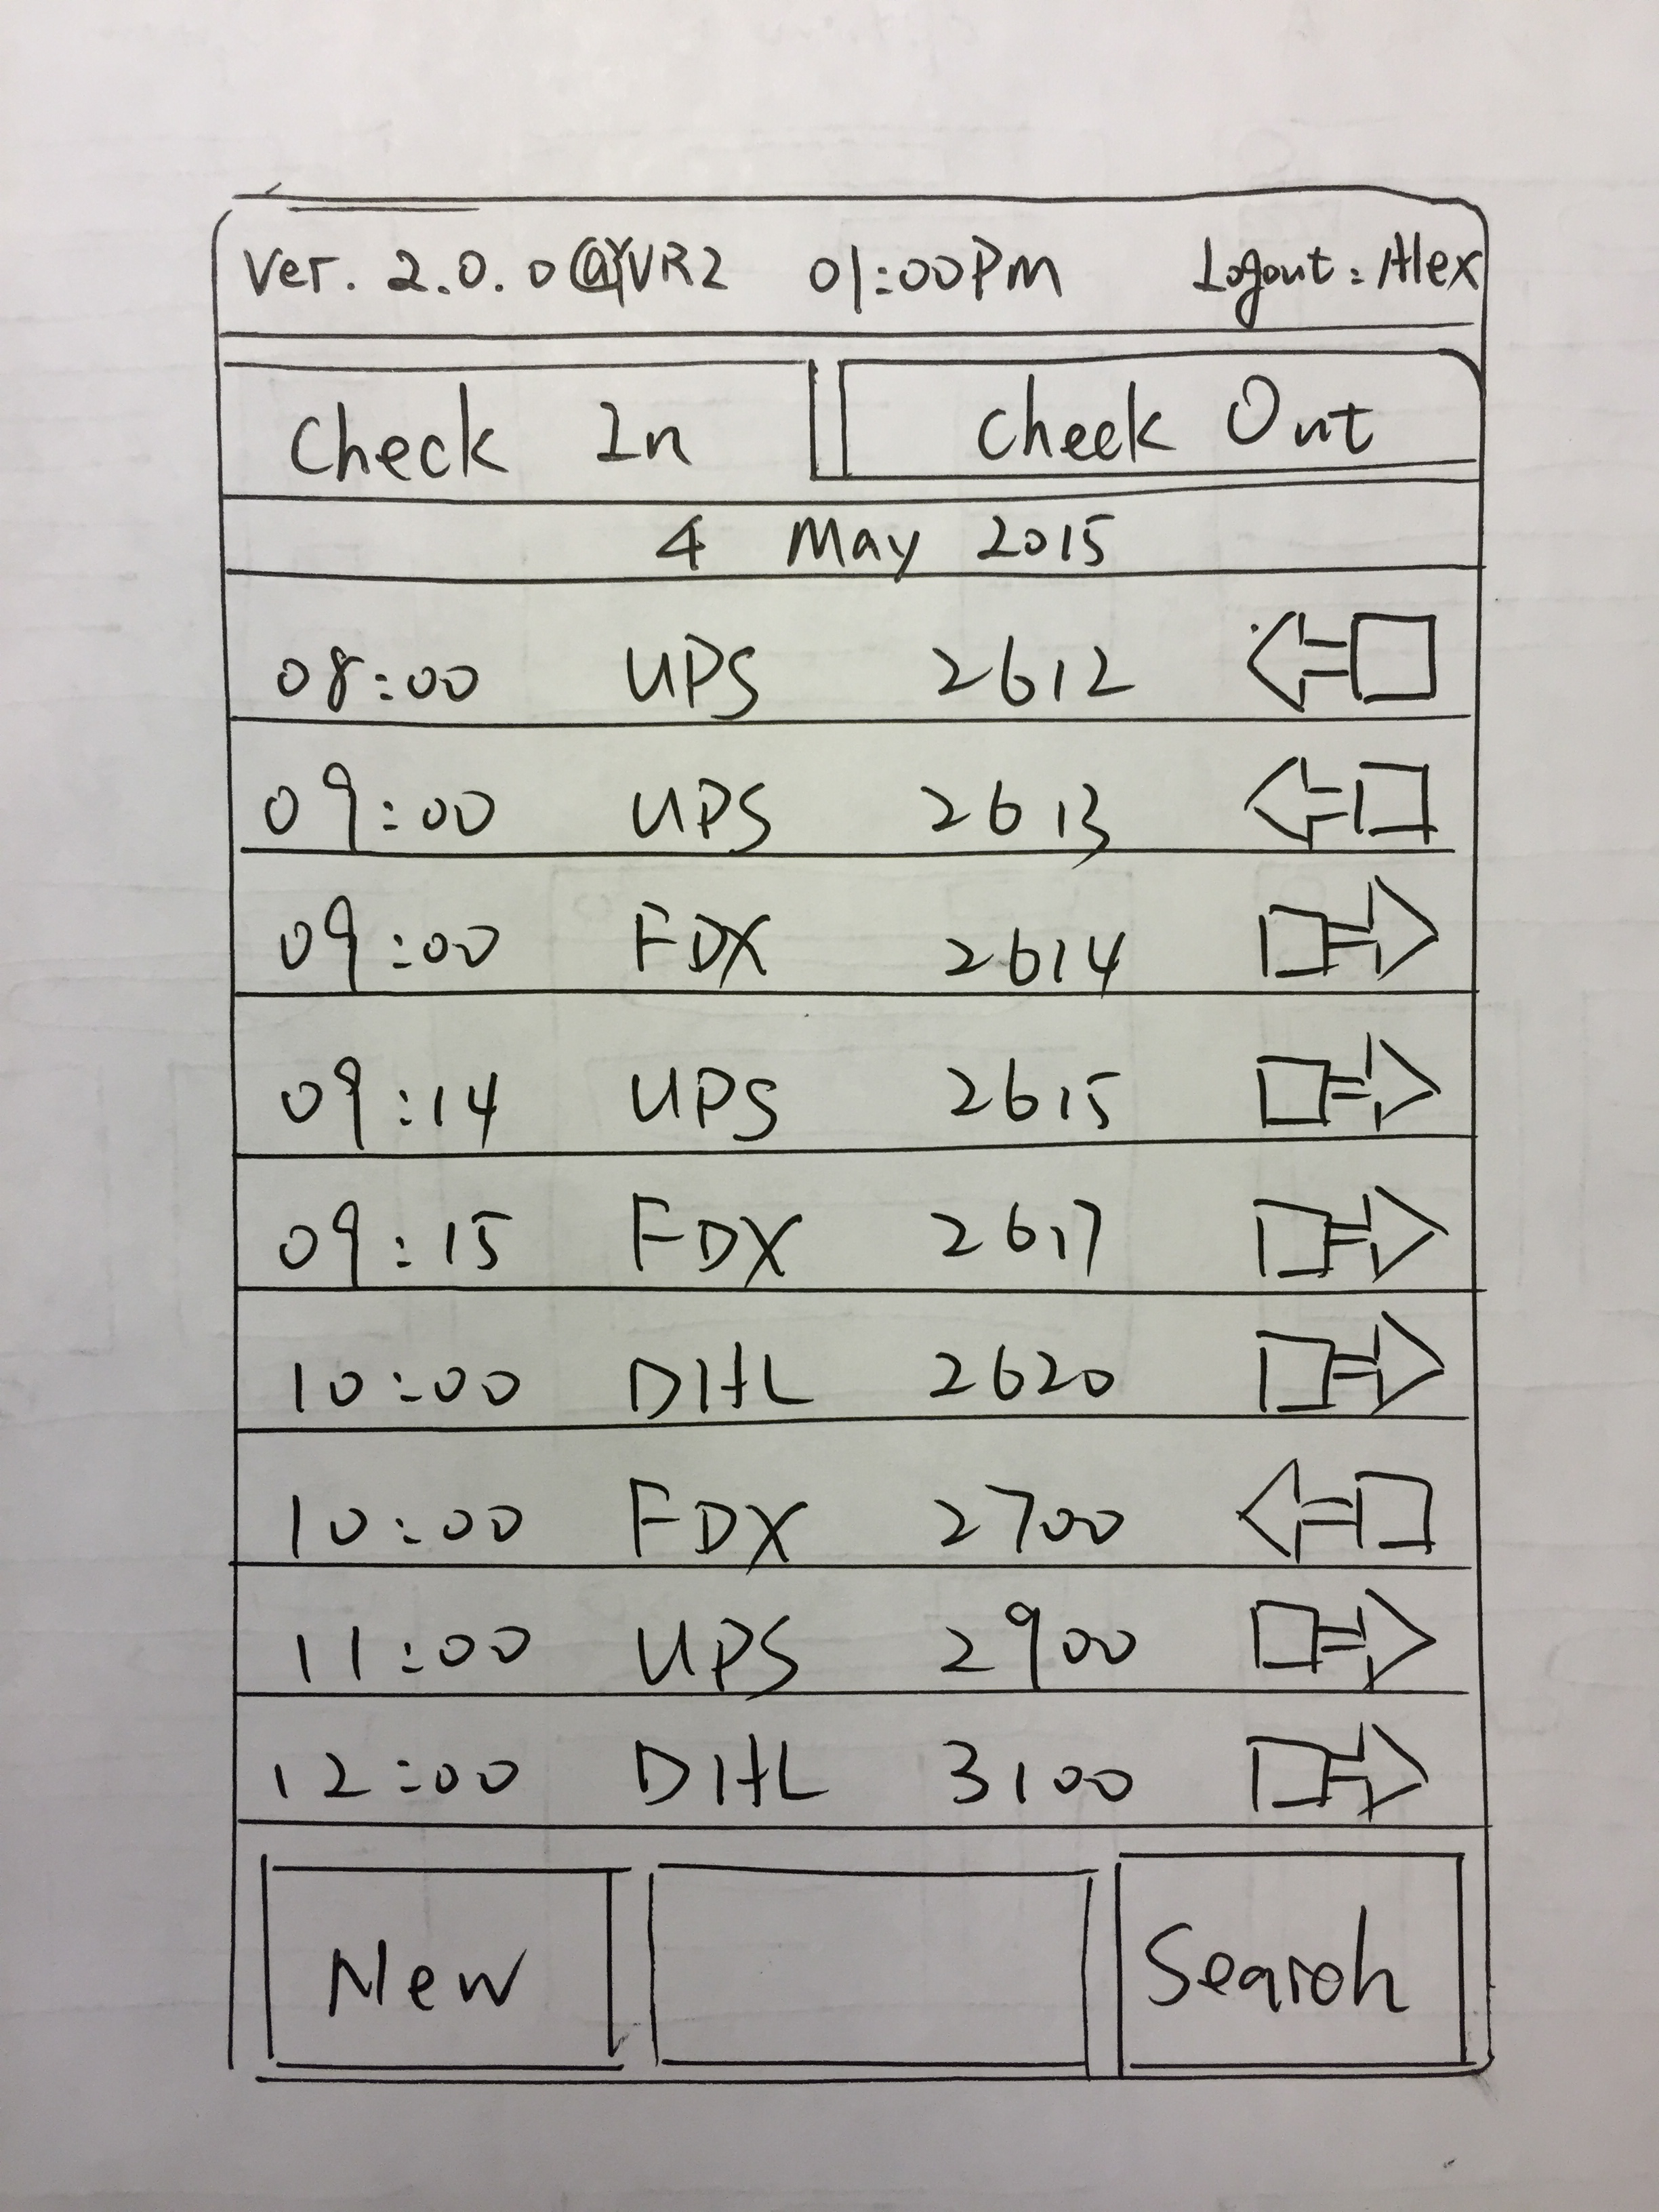 Ver. 2.0.0@YVR2 01:00PM Logout: Alex
Check In Check Out
4 May 2015
08:00 UPS 2612
09:00 UPS 2613
09:00 FDX 2614
09:14 UPS 2615
09:15 FDX 2617
10:00 DHL 2620
10:00 FDX 2700
11:00 UPS 2900
12:00 DHL 3100
New Search